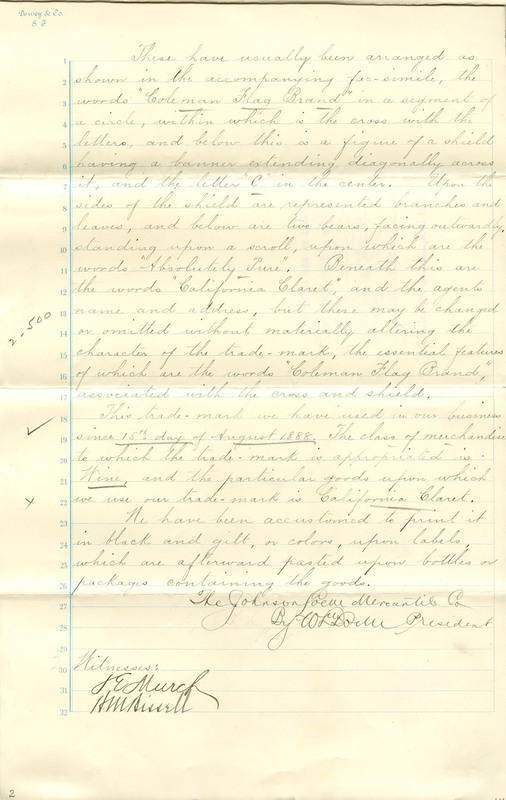 Dewey & Co.
S. F.
1 These have usually been arranged as
2 shown in the accompanying fac-simile, the
3 words "Coleman Flag Brand" in a segment of
4 a circle, within which is the cross with the
5 letters, and below this is a figure of a shield
6 having a banner extending diagonally across
7 it, and the letter "C" in the center. Upon the
8 sides of the shield are represented branches and
9 leaves, and below are two bears, facing outwardly,
10 standing upon a scroll, upon which are the
11 words "Absolutely Pure". Beneath this are
12 the words "California Claret," and the agents
13 name and address, but these may be changed
2-500
14 or omitted without materially altering the
15 character of the trade-mark, the essential features
16 of which are the words "Coleman Flag Brand",
17 associated with the cross and shield.
18 This trade-mark we have used in our business
19 since 15th day of August 1888. The class of merchandise
20 to which the trade-mark is appropriated is
21 Wine, and the particular goods upon which
22 we use our trade-mark is California Claret.
x
23 We have been accustomed to print it
24 in black and gilt, or colors, upon labels,
25 which are afterward pasted upon bottles or
26 packages containing the goods.
27 The Johnson Locke Mercantile Co
28 By President
29
30 Witnesses:
31 J E Murch
32 H M Bissell
2